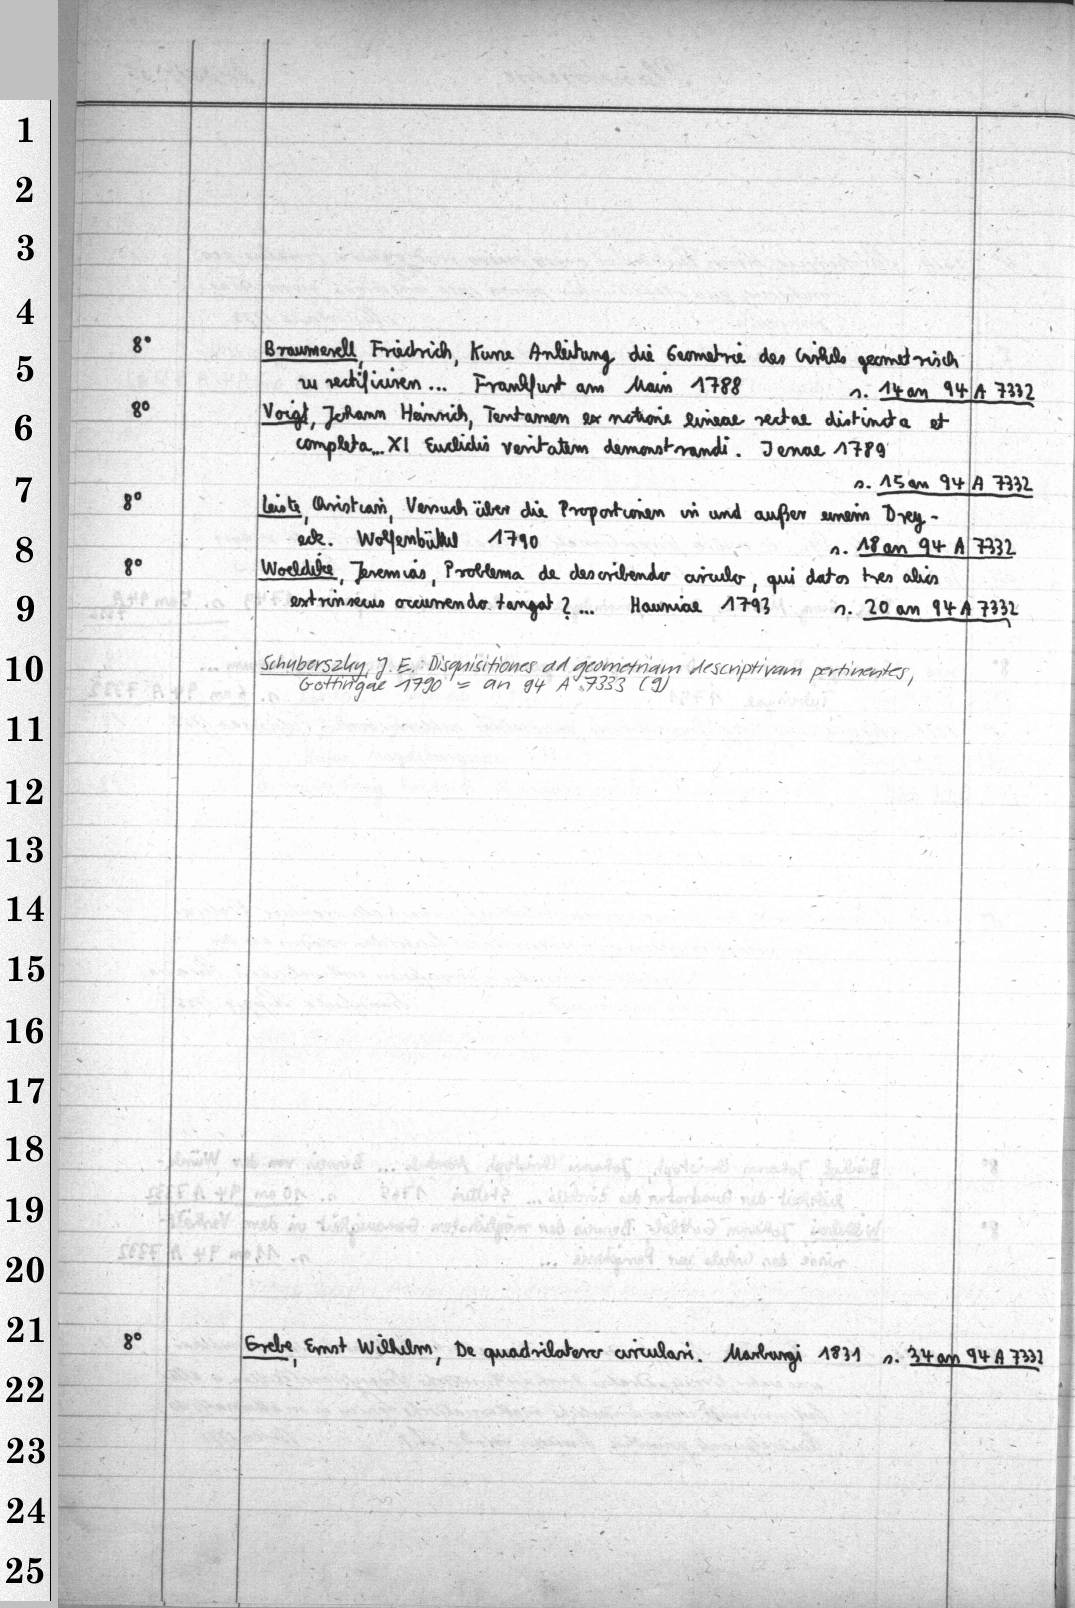 1
2
3
4
8° Braumerell, Friedrich, Kurze Anleitung die Geometrie des Cirkels geometrisch
5
zu rectificiren... Frankfurt am Main 1788 s. 14 an 94 A 7332
8° Voigt, Johann Heinrich, Tentamen ex notione lineae rectae distincta et
6
completa... XI Euclidis veritatem demonstrandi. Jenae 1789
7
s. 15 an 94 A 7332
8° Leiste, Christian, Versuch über die Proportionen in und außer einem Drey-
8
eck. Wolfenbüttel 1790 s. 18 an 94 A 7332
8° Woeldike, Jeremias, Problema de describendo circulo, qui datos tres alios
9
extrinsecus occurrendo tangat?... Hauniae 1793 s. 20 an 94 A 7332
10
Schuberszky, J. E.: Disquisitiones ad geometriam descriptivam pertinentes,
Gottingae 1790 = an 94 A 7333 (9)
11
12
13
14
15
16
17
18
19
20
21
8° Grebe, Ernst Wilhelm, De quadrilatero circulari. Marburgi 1831 s. 34 an 94 A 7332
22
23
24
25